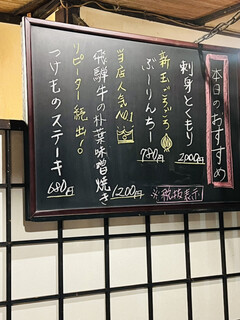 本日のおすすめ
刺身とくもり 2000円
新玉ごろごろ
ぶーりんちー 780円
当店人気No1
飛騨牛の朴葉味噌焼き 1200円
リピーター続出!
つけものステーキ 680円
※税抜表示